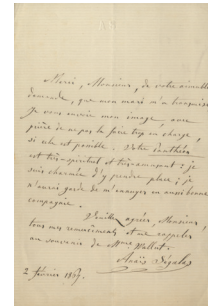 Merci, Monsieur, de votre aimable
demande, que mon mari m'a transmise.
Je vous envoie mon image, avec
prière de ne pas la faire trop en charge,
si cela est possible. Votre Panthéon
est très spirituel et très amusant : je
suis charmée d'y prendre place ; je
n'aurai garde de m'ennuyer en aussi bonne
compagnie.
Veuillez agréer, Monsieur,
tous mes remerciements et me rappeler
au souvenir de Mme
Anaïs Ségalas
2 février 1867.